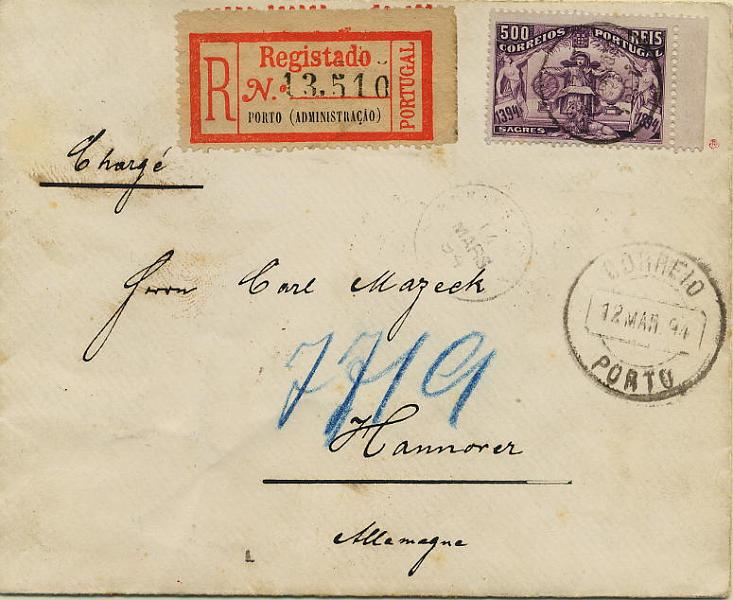 Registado
R
N.º 13.510
PORTO (ADMINISTRAÇÃO)
PORTUGAL
500 REIS
CORREIOS PORTUGAL
1394 1894
SAGRES
Chargé
MARS
94
Herrn Carl Mazeck
CORREIO
12 MAR 94
PORTO
7719
Hannover
Allemagne